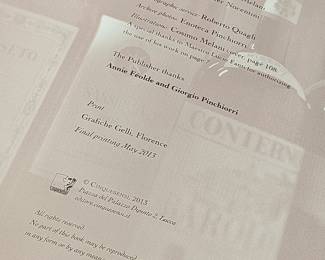 Roberto Quagli
Archive photos: Enoteca Pinchiorri
Illustrations: Cosimo Melani cover, page 108
A special thanks to Maestro Luca authorizing
the use of his work on page
The Publisher thanks
Annie Féolde and Giorgio Pinchiorri
Print
Grafiche Gelli, Florence
Final printing May 2013
© Cinquesensi, 2013
Piazza del Palazzo Dipinto 2, Lucca
All rights reserved.
No part of this book may be reproduced
in any form or by any
CONTERN